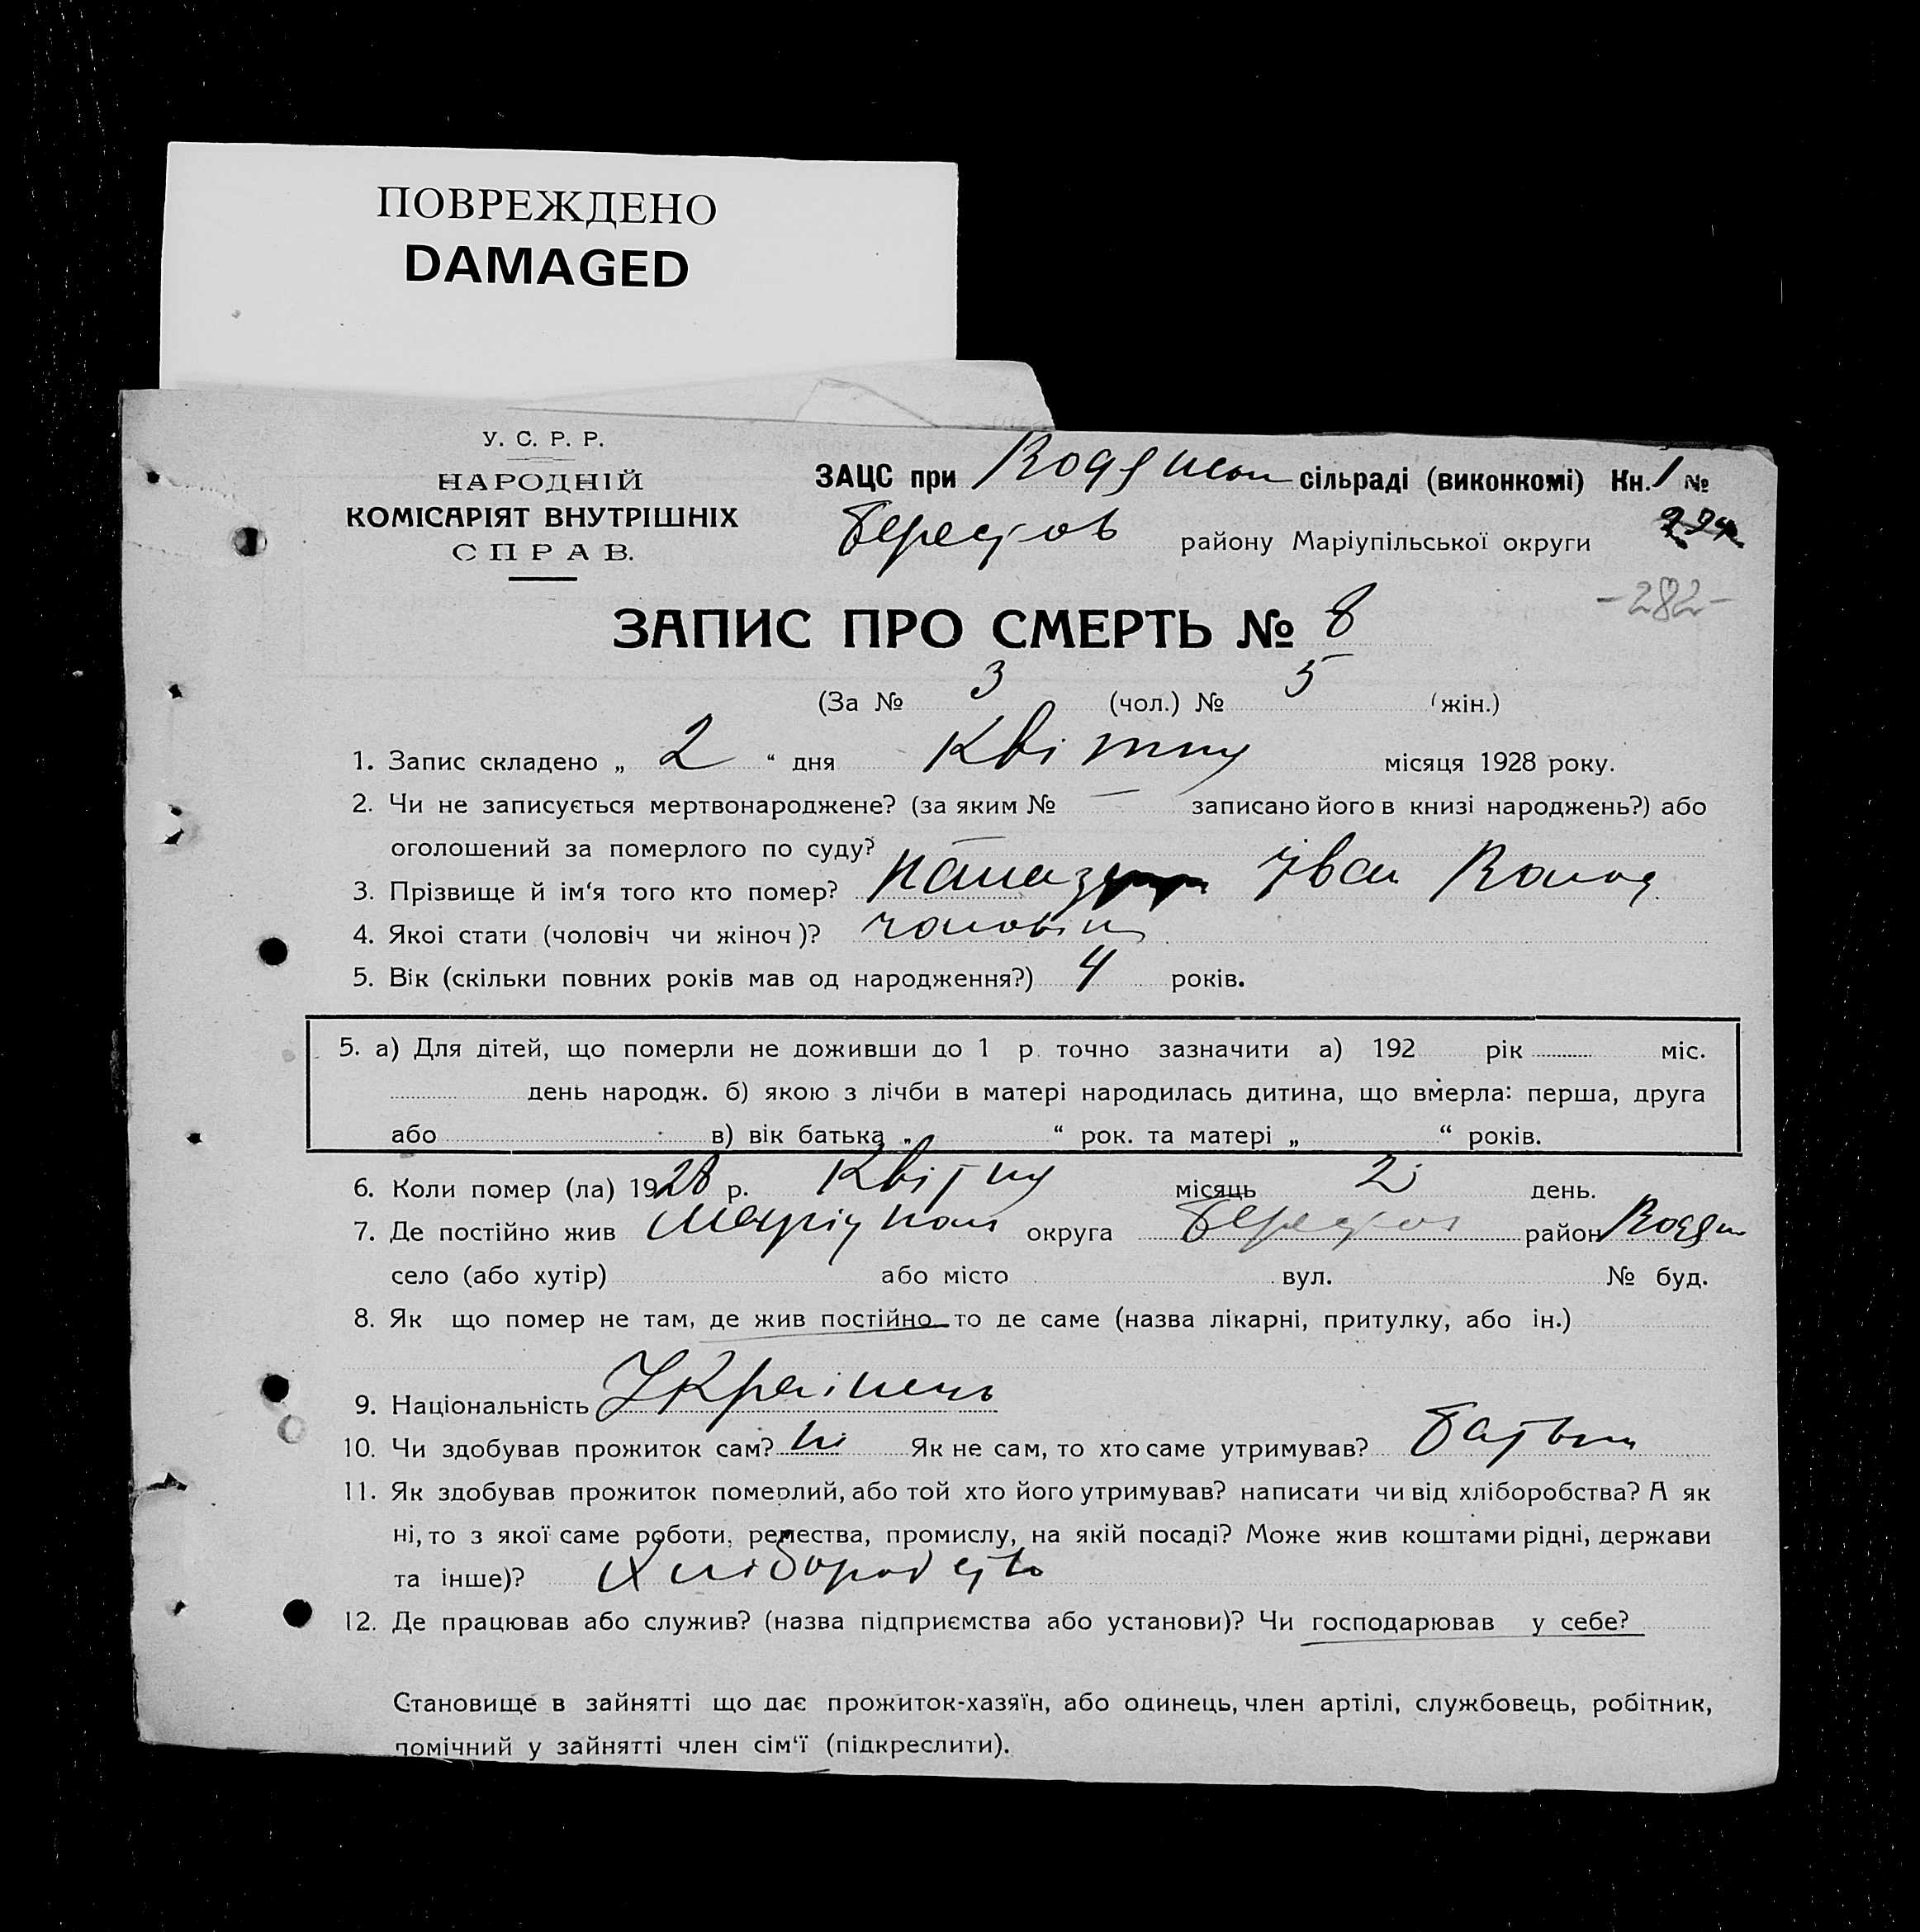 ПОВРЕЖДЕНО
DAMAGED
У. С. Р. Р.
НАРОДНІЙ
КОМІСАРІЯТ ВНУТРІШНІХ
СПРАВ.
ЗАЦС при сільраді (виконкомі) Кн. 1 №
Берестов району Маріупільської округи
-282-
ЗАПИС ПРО СМЕРТЬ № 8
(За № 3 (чол.) № 5 (жін.)
1. Запис складено „ 2 “ дня Квітня місяця 1928 року.
2. Чи не записується мертвонароджене? (за яким № — записано його в книзі народжень?) або
оголошений за померлого по суду? —
3. Прізвище й ім‘я того кто помер? Іван
4. Якоі стати (чоловіч чи жіноч)? чоловіч
5. Вік (скільки повних років мав од народження?) 4 років.
5. а) Для дітей, що померли не доживши до 1 р. точно зазначити а) 192 рік міс.
день народж. б) якою з лічби в матері народилась дитина, що вмерла: перша, друга
або в) вік батька „ “ рок. та матері „ “ років.
6. Коли помер (ла) 1928 р. Квітня місяць 2 день.
7. Де постійно жив Маріупол округа Берестов район
село (або хутір) або місто вул. № буд.
8. Як що помер не там, де жив постійно то де саме (назва лікарні, притулку, або ін.)
9. Національність Українець
10. Чи здобував прожиток сам? ні Як не сам, то хто саме утримував? батьки
11. Як здобував прожиток померлий, або той хто його утримував? написати чи від хліборобства? А як
ні, то з якої саме роботи, ремества, промислу, на якій посаді? Може жив коштами рідні, держави
та інше)? Хліборобство
12. Де працював або служив? (назва підприємства або установи)? Чи господарював у себе?
Становище в зайнятті що дає прожиток-хазяїн, або одинець, член артілі, службовець, робітник,
помічний у зайнятті член сім‘ї (підкреслити).